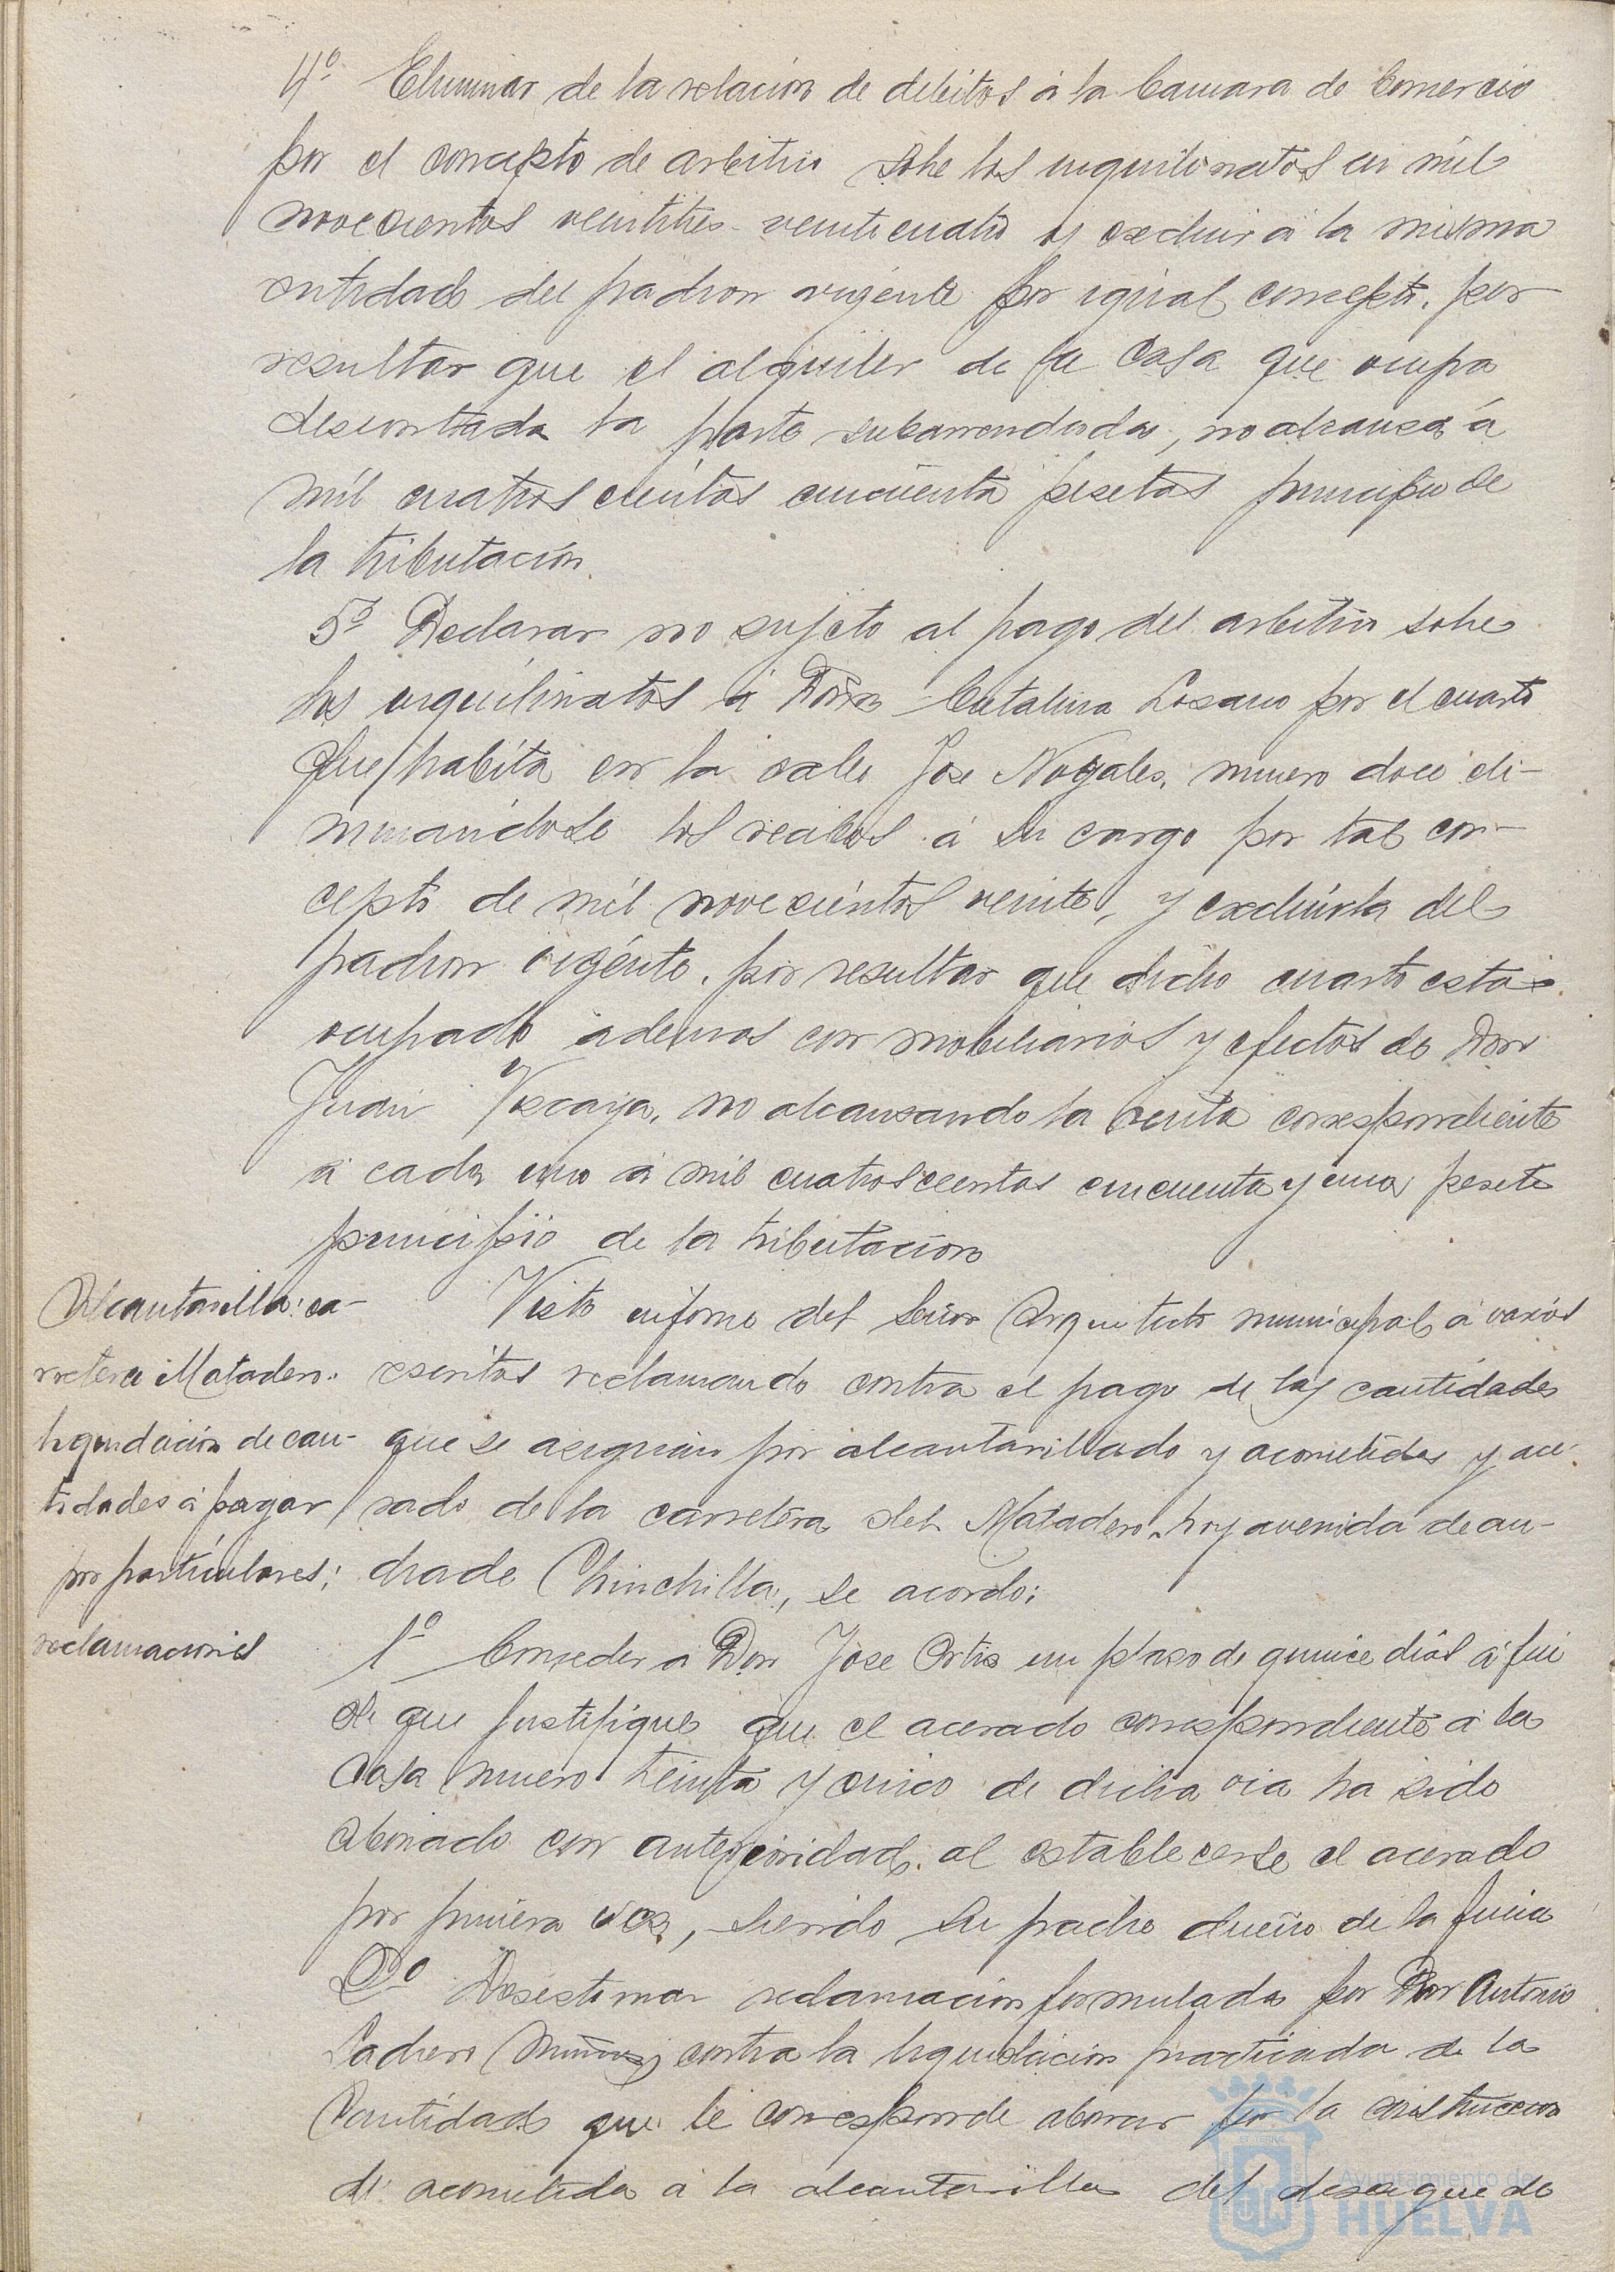 4º Eliminar de la relación de debitos á la Camara de Comercio
por el concepto de arbitrio sobre los inquilinatos en mil
novecientos veintitres-veinticuatro y excluir á la misma
entidad del padron vigente por igual concepto, por
resultar que el alquiler de la casa que ocupa
descontada la parte subarrendada, no alcanza á
mil cuatroscientas cincuenta pesetas principio de
la tributación.
5º Declarar no sujeto al pago del arbitrio sobre
los inquilinatos á Doña Catalina Lozano por el cuarto
que habita en la calle Jose Nogales, numero doce eli-
minandose los recibos á su cargo por tal con-
cepto de mil novecientos veinte, y excluirla del
padron vigente, por resultar que dicho cuarto está
ocupado ademas con mobiliarios y efectos de Don
Juan Viscaya, no alcanzando la renta correspondiente
á cada uno á mil cuatroscientas cincuenta y una peseta
principio de la tributación
Alcantarilla: ca-
rretera Matadero.
liquidación de can-
tidades á pagar
por particulares;
reclamaciones
Visto informe del Señor Arquitecto municipal á varios
escritos reclamando contra el pago de las cantidades
que se asignan por alcantarillado y acometidas y ace-
rado de la carretera del Matadero, hoy avenida de an-
drade Chinchilla, se acordo:
1º Conceder a Don Jose Ortiz un plazo de quince dias á fin
de que justifique que el acerado correspondiente á la
casa numero treinta y cinco de dicha via ha sido
abonado con anterioridad, al establecerse el acerado
por primera vez, siendo su padre dueño de la finca
2º Desestimar reclamación formulada por Don Antonio
Ladrero Muñoz contra la liquidación practicada de la
Cantidad que le corresponde abonar por la construccion
de acometida a la alcantarilla del desague de
Ayuntamiento de
HUELVA